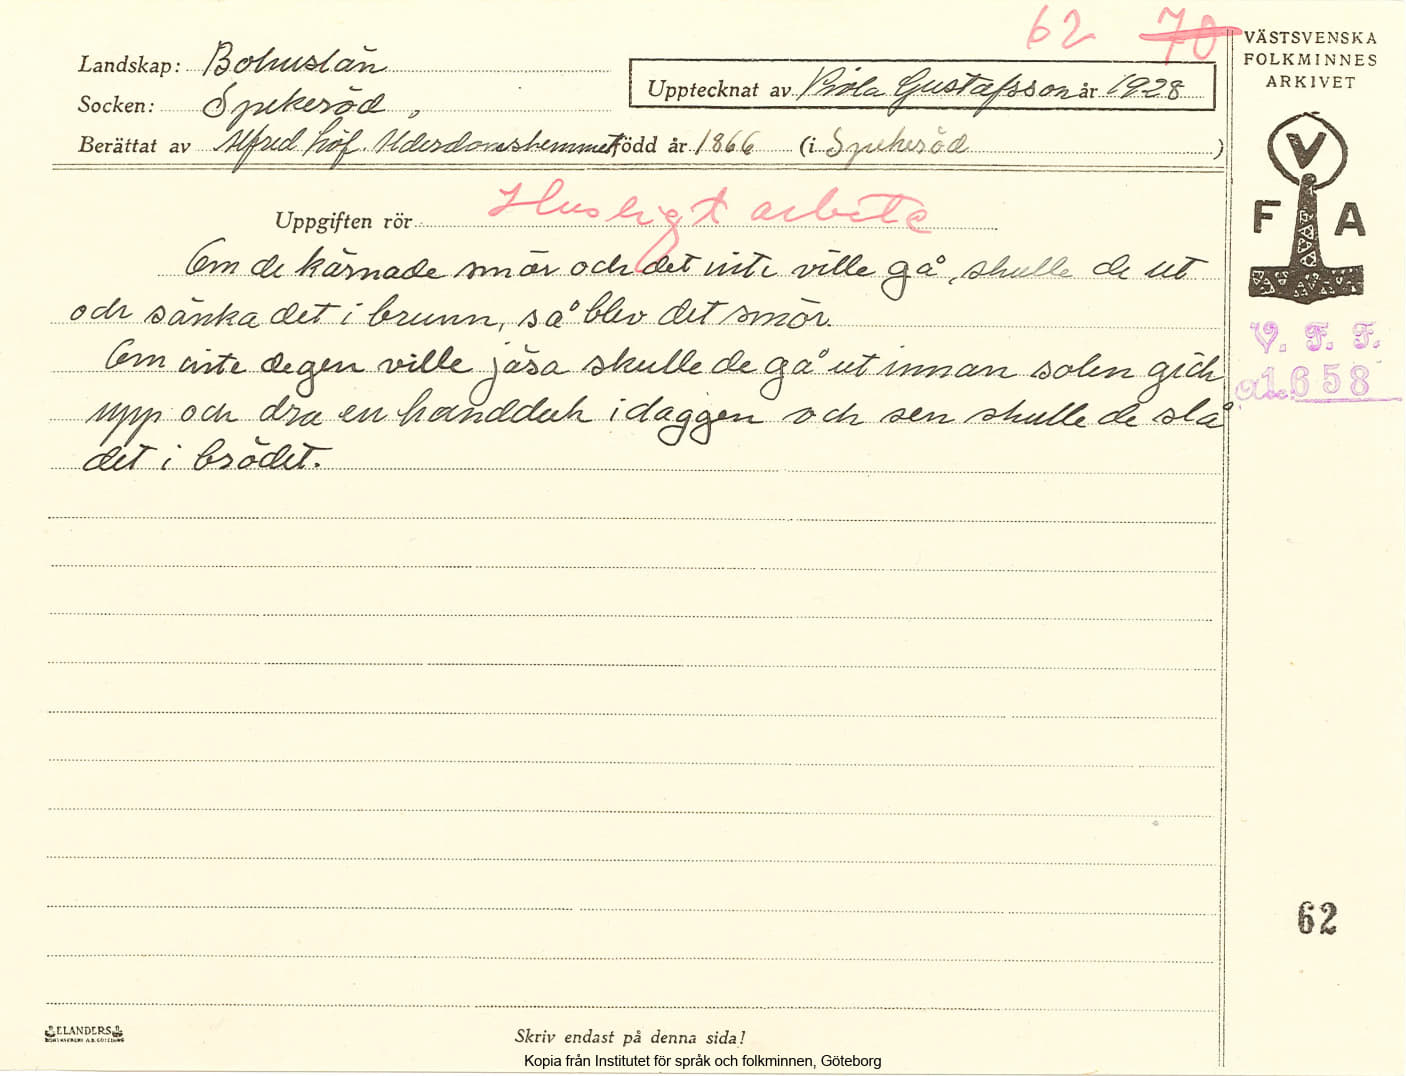 62 70
VÄSTSVENSKA
FOLKMINNES
ARKIVET
Landskap: Bohuslän
Upptecknat av Viola Gustafsson år 1928
Socken: Spekeröd
Berättat av Alfred Löf. Ålderdomshemmet född år 1866 (i Spekeröd)
V
F A
Uppgiften rör Husligt arbete
Om de kärnade smör och det inte ville gå, skulle de ut
och sänka det i brunn, så blev det smör.
Om inte degen ville jäsa skulle de gå ut innan solen gick
upp och dra en handduk i daggen och sen skulle de slå
det i brödet.
V. F. F.
a1.658
62
ELANDERS
Skriv endast på denna sida!
Kopia från Institutet för språk och folkminnen, Göteborg